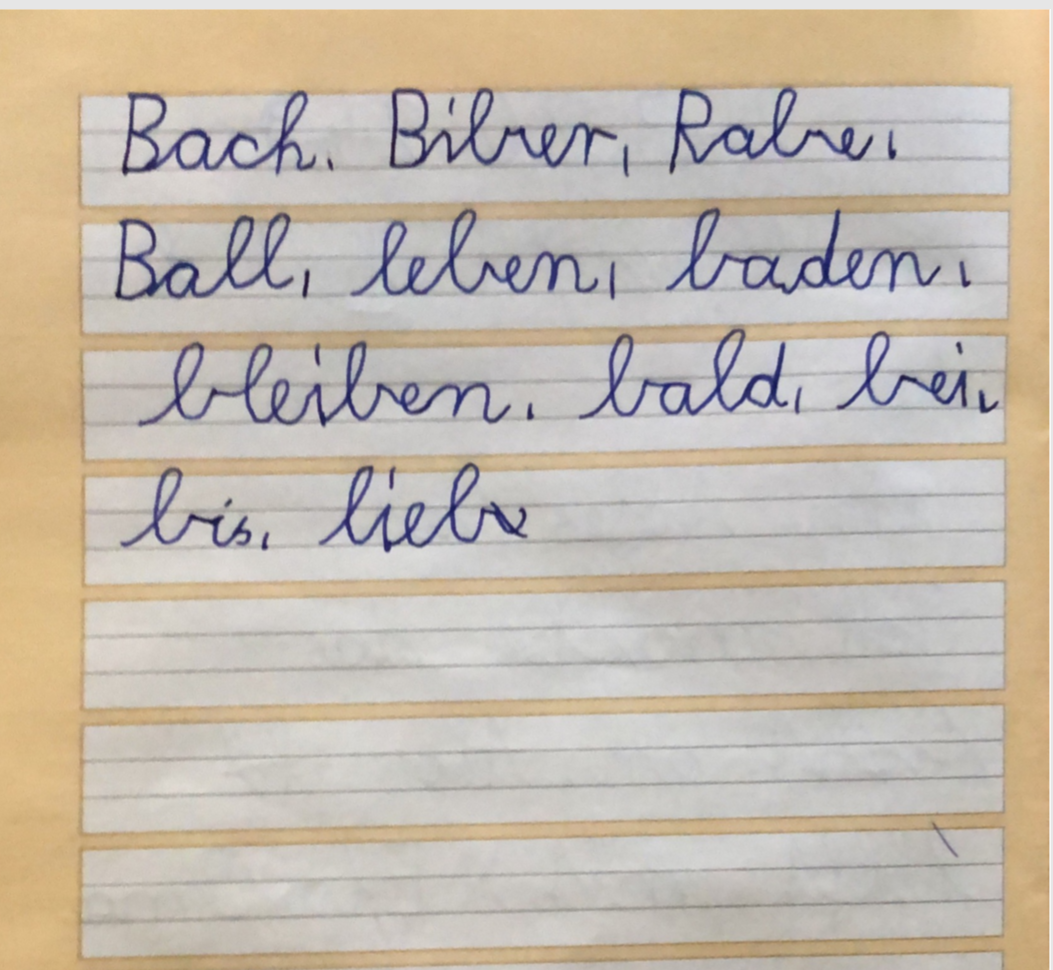 Bach. Biber, Rabe.
Ball, leben, baden.
bleiben. bald, bei.
bis, lieb